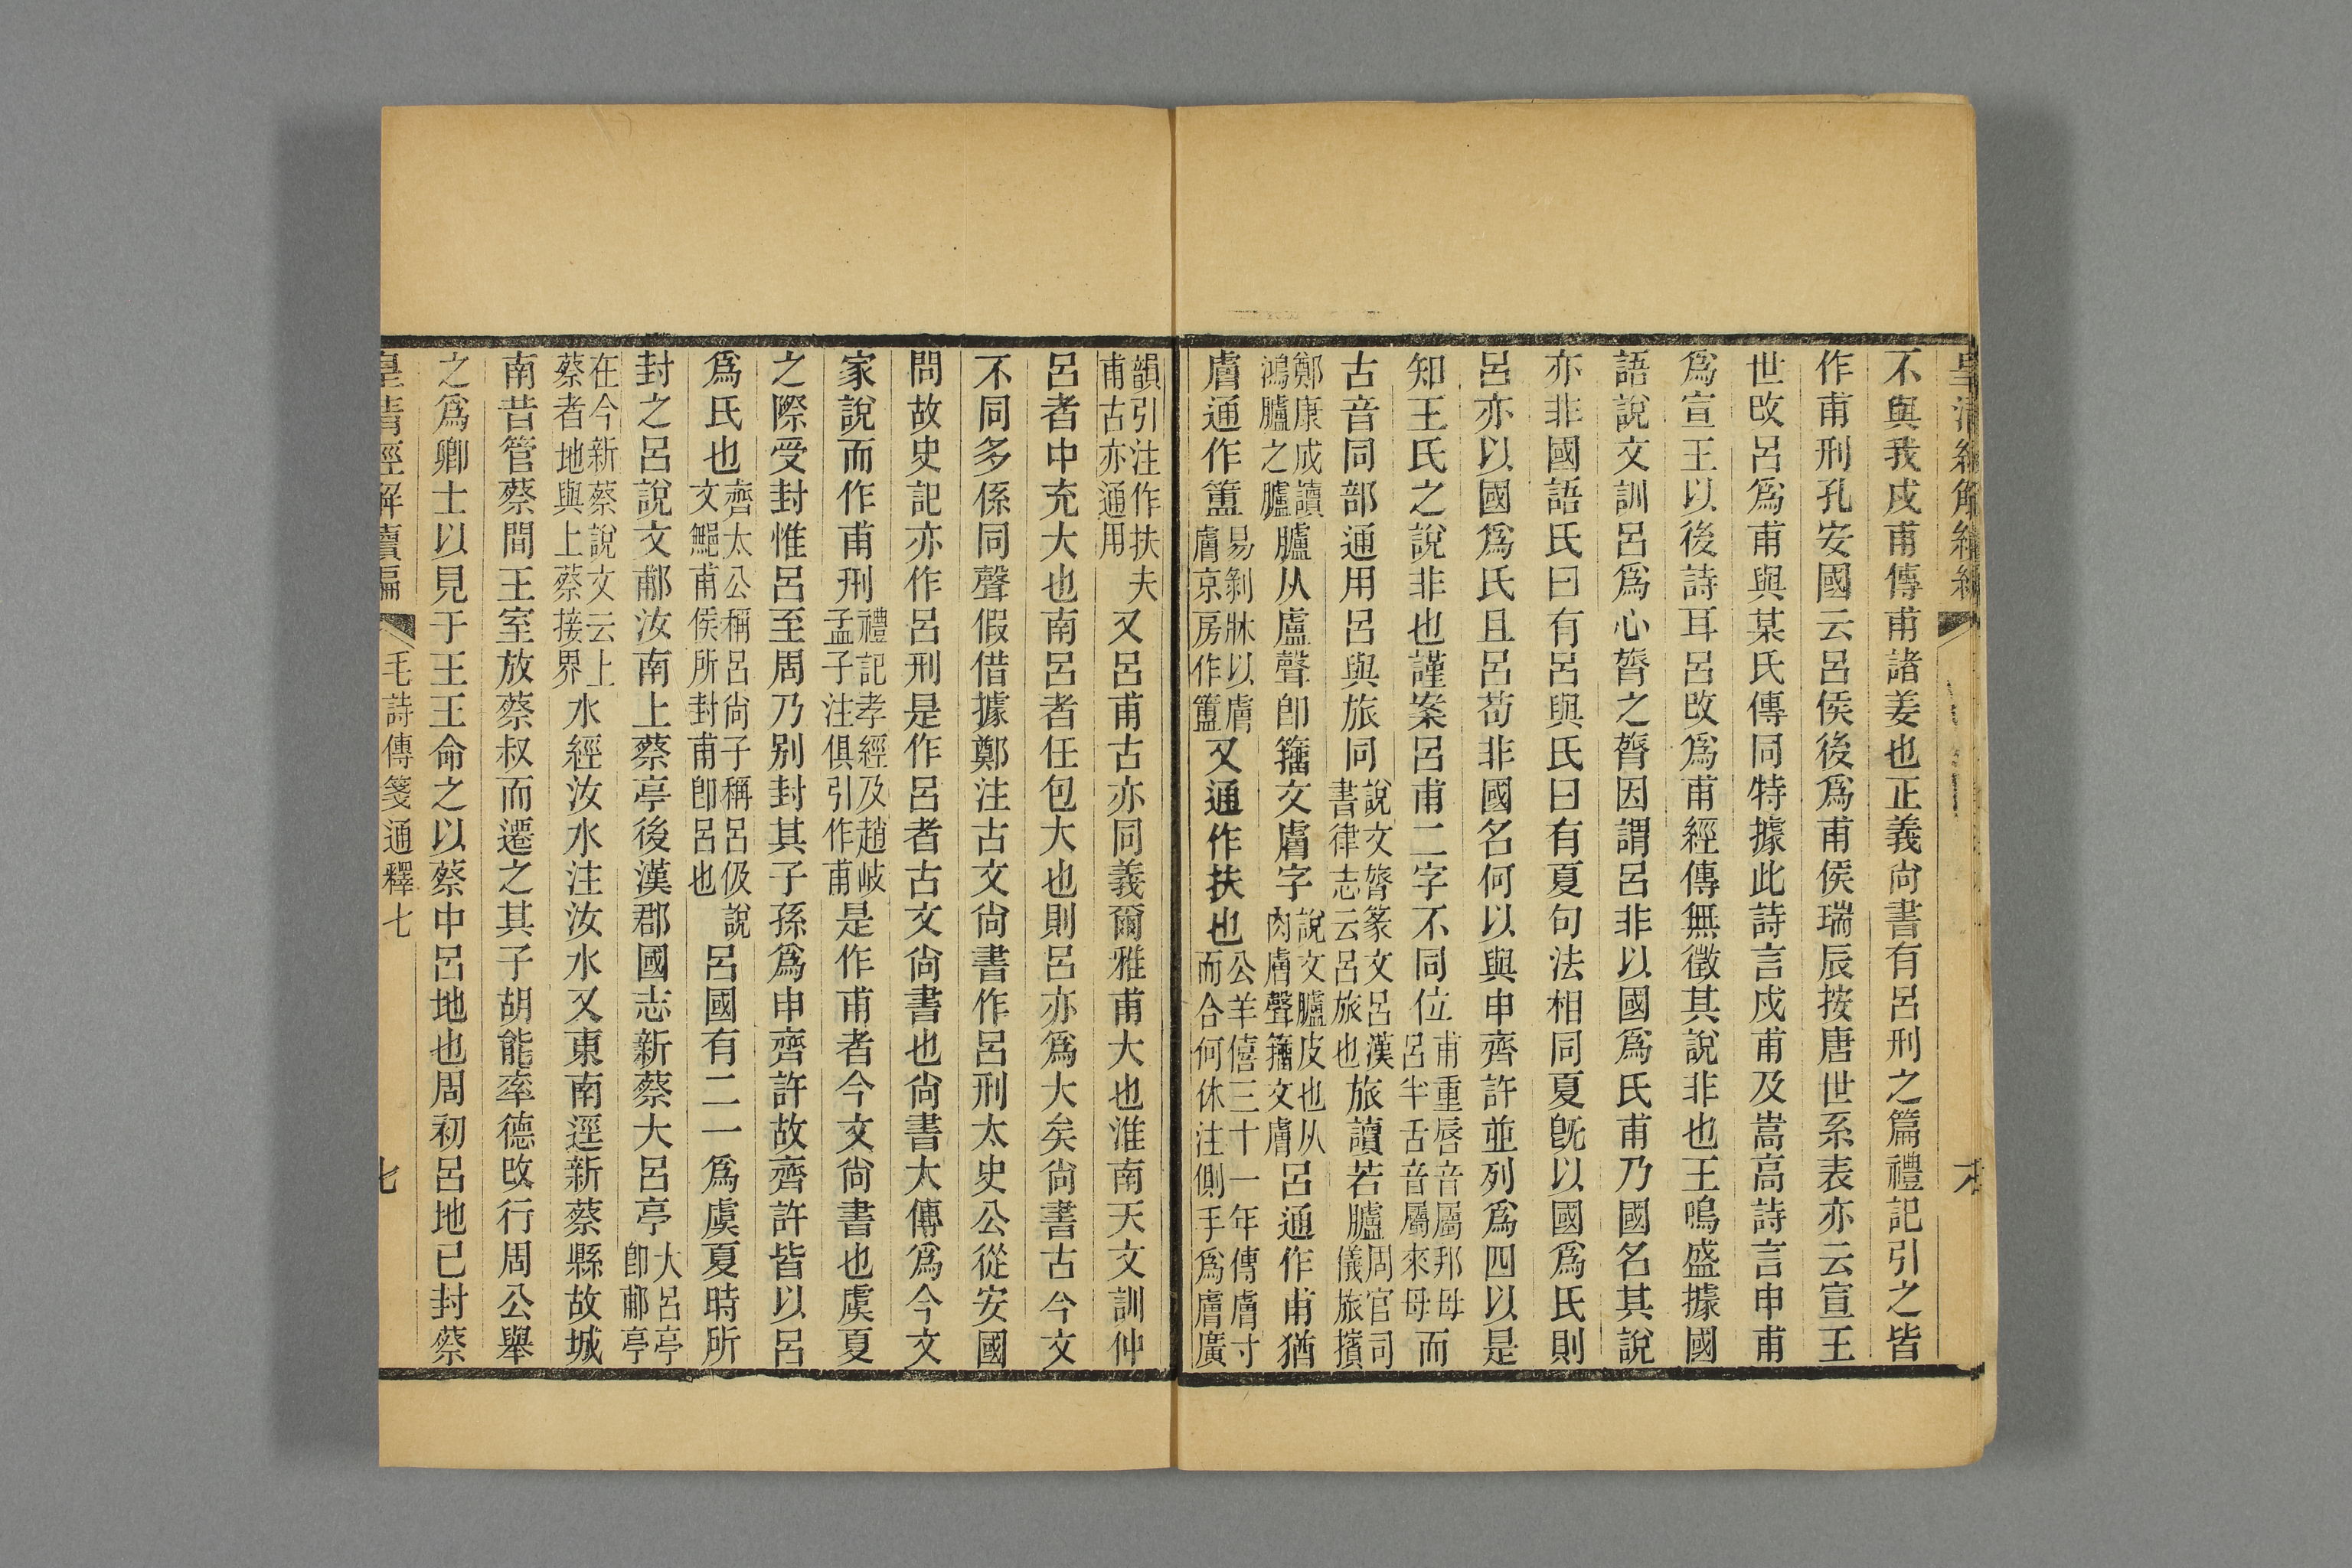 皇清經解續編
不與我戍甫傳甫諸姜也正義尚書有呂刑之篇禮記引之皆
作甫刑孔安國云呂侯後爲甫侯瑞辰按唐世系表亦云宣王
世改呂爲甫與某氏傳同特據此詩言戍甫及嵩高詩言申甫
爲宣王以後詩耳呂改爲甫經傳無徵其說非也王鳴盛據國
語說文訓呂爲心膂之膂因謂呂非以國爲氏甫乃國名其說
亦非國語氏曰有呂與氏曰有夏句法相同夏旣以國爲氏則
呂亦以國爲氏且呂苟非國名何以與申齊許並列爲四以是
知王氏之說非也謹案呂甫二字不同位甫重唇音屬邦母呂半舌音屬來母而
古音同部通用呂與旅同說文膂篆文呂漢書律志云呂旅也旅讀若臚周官司儀旅擯
鄭康成讀鴻臚之臚臚从盧聲卽籒文膚字說文臚皮也从肉膚聲籒文膚呂通作甫猶
膚通作簠易剝牀以膚京房作簠又通作扶也公羊僖三十一年傳膚寸而合何休注側手爲膚廣
韻引注作扶夫甫古亦通用又呂甫古亦同義爾雅甫大也淮南天文訓仲
呂者中充大也南呂者任包大也則呂亦爲大矣尚書古今文
不同多係同聲假借據鄭注古文尚書作呂刑太史公從安國
問故史記亦作呂刑是作呂者古文尚書也尚書太傳爲今文
家說而作甫刑禮記孝經及趙岐孟子注俱引作甫是作甫者今文尚書也虞夏
之際受封惟呂至周乃別封其子孫爲申齊許故齊許皆以呂
爲氏也齊太公稱呂尚子稱呂伋說文鄦甫侯所封甫卽呂也呂國有二一爲虞夏時所
封之呂說文鄘汝南上蔡亭後漢郡國志新蔡大呂亭大呂亭卽鄘亭
在今新蔡說文云上蔡者地與上蔡接界水經汝水注汝水又東南逕新蔡縣故城
南昔管蔡間王室放蔡叔而遷之其子胡能率德改行周公舉
之爲卿士以見于王王命之以蔡中呂地也周初呂地已封蔡
皇清經解續編 毛詩傳箋通釋七 七